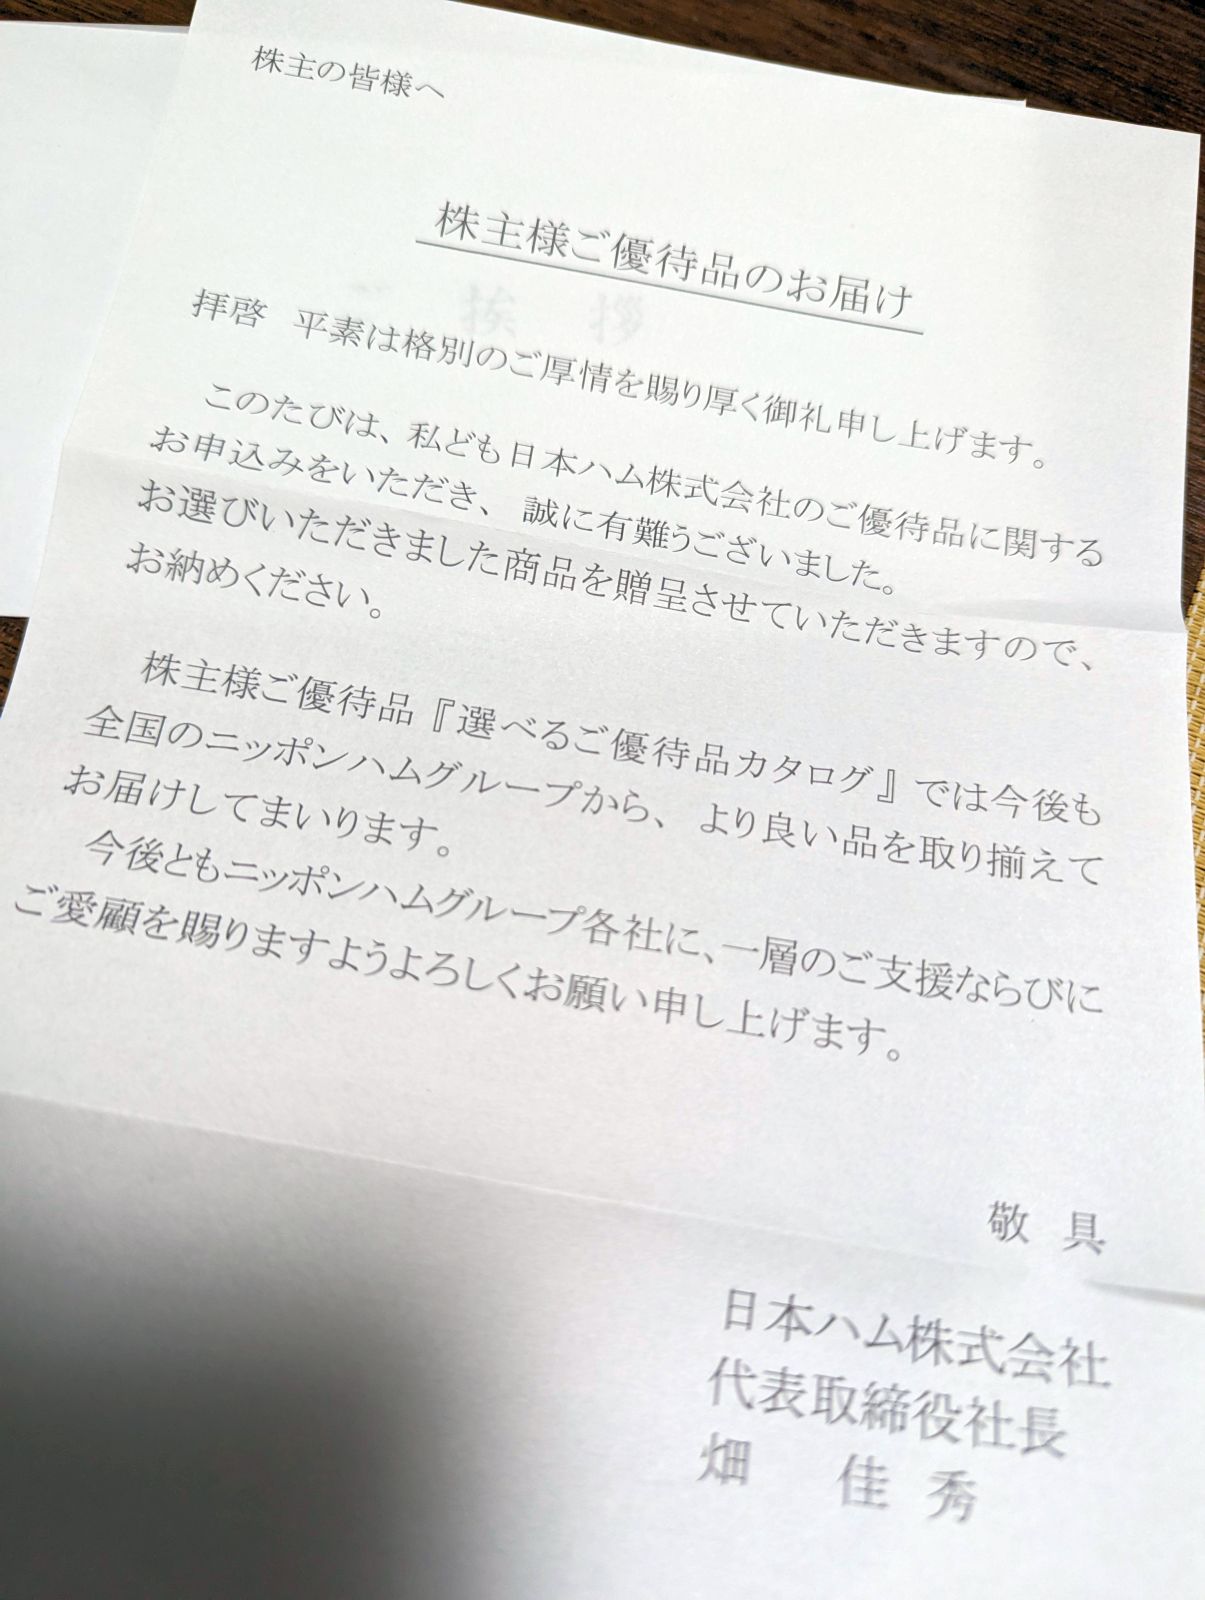 株主の皆様へ
株主様ご優待品のお届け
拝啓 平素は格別のご厚情を賜り厚く御礼申し上げます。
このたびは、私ども日本ハム株式会社のご優待品に関する
お申込みをいただき、誠に有難うございました。
お選びいただきました商品を贈呈させていただきますので、
お納めください。
株主様ご優待品『選べるご優待品カタログ』では今後も
全国のニッポンハムグループから、より良い品を取り揃えて
お届けしてまいります。
今後ともニッポンハムグループ各社に、一層のご支援ならびに
ご愛顧を賜りますようよろしくお願い申し上げます。
敬 具
日本ハム株式会社
代表取締役社長
畑 佳 秀